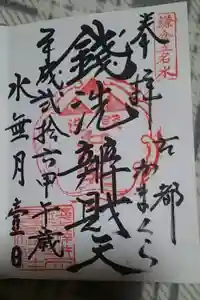 鎌倉五名水
奉拝 古都
かまくら
錢洗辨財天
平成弐拾六甲午歳
水無月壹日